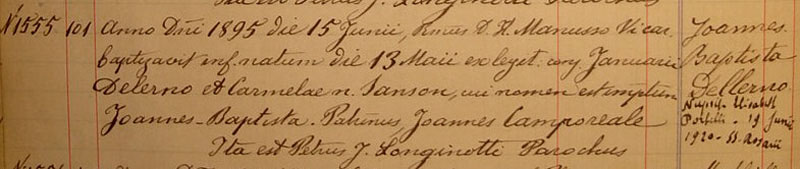 Ita est Petrus J. Longinotti Parochus
N1555 101 Anno Dñi 1895 die 15 Junii, Rmus D. A. Manusso Vicar. Joannes
baptizavit inf. natum die 13 Maii ex legit: conj. Januario Baptista
Delerno et Carmelae n. Sanson, cui nomen est impositum Dellerno
Joannes-Baptista. Patrinus, Joannes Camporeale Nupsit Elisabeth
19 Junii
Ita est Petrus J. Longinotti Parochus 1920 - SS. Rosarii